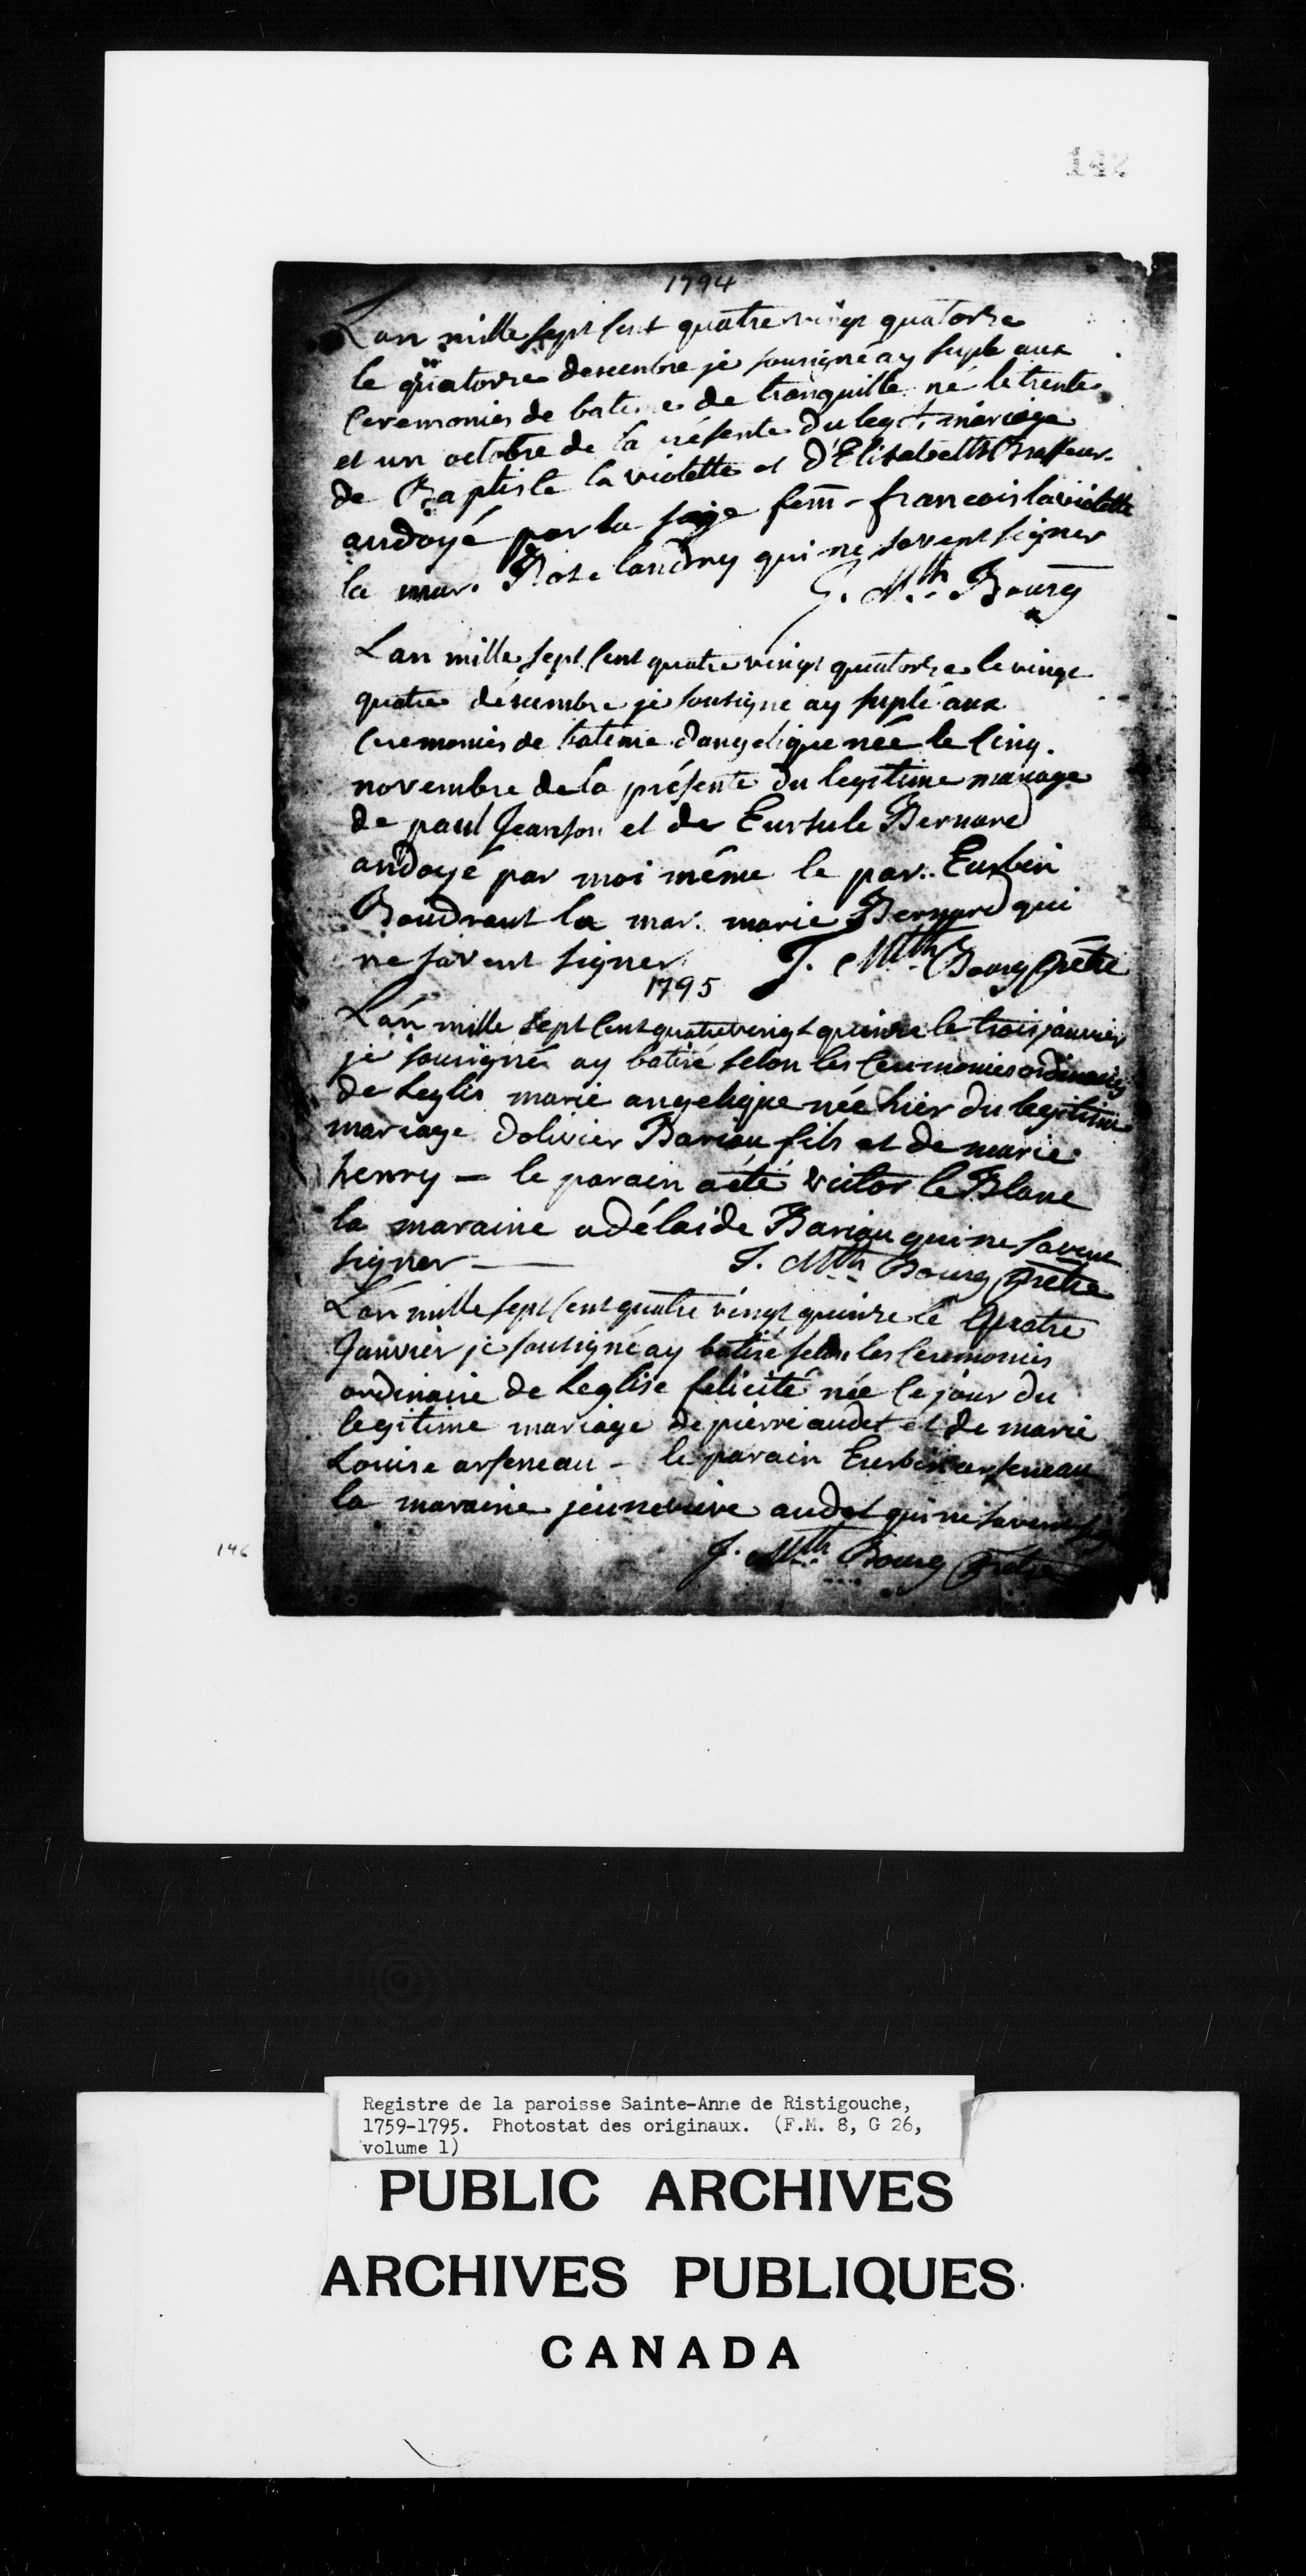 1794
Lan mille sept Cent quatre vingt quatorze
le quatorze desenbre je sousigné ay suplé aux
Ceremonies de bateme de tranquille né le trente
et un octobre de la présente du legit. mariage
de Baptiste la violette et d'Elisabeth Brasseur
andoyé par la sage fem̄ - francois laviolette
la mar. Rose landry qui ne savent signer
J. Mth Bourg
Lan mille sept Cent quatre vingt quatorze le vingt
quatre désembre je sousigné ay suplé aux
Ceremonies de bateme dangelique née le Cinq.
novembre de la présente du legitime mariage
de paul Jeanson et de Eursule Bernard
andoyé par moi même le par. Eusbin
Boudraut la mar. marie Bernard qui
ne savent signer J. Mth Bourg prêtre
1795
Lán mille sept Cent quatrevingt quinze le trois janvier
je sousigné ay batisé selon les Ceremonies ordinaires
de Leglis marie angelique née hier du legitime
mariage dolivier Bariau fils et de marie
henry - le parain aété victor le Blanc
la maraine adélaide Bariau qui ne savent
signer - J. Mth Bourg Prêtre
Lán mille sept Cent quatre vingt quinze le Quatre
Janvier je sousigné ay batisé selon les Ceremonies
ordinaire de Leglise felicité née Ce jour du
legitime mariage de pierre audet et de marie
Louise arseneau - le parain Eusbin arseneau
la maraine jeunevieve audet qui ne savent
J. Mth Bourg Prêtre
146
Registre de la paroisse Sainte-Anne de Ristigouche,
1759-1795. Photostat des originaux. (F.M. 8, G 26,
volume 1)
PUBLIC ARCHIVES
ARCHIVES PUBLIQUES
CANADA